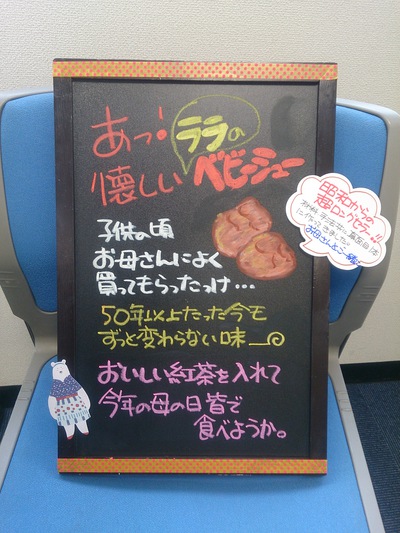 あっ!ララの
懐しいベビーシュー
子供の頃
お母さんによく
買ってもらったっけ…
50年以上たった今も
ずっと変わらない味
おいしい紅茶を入れて
今年の母の日皆で
食べようか。
昭和からの
超ロングセラー!!
に作ってきました。
お母さんと一緒に